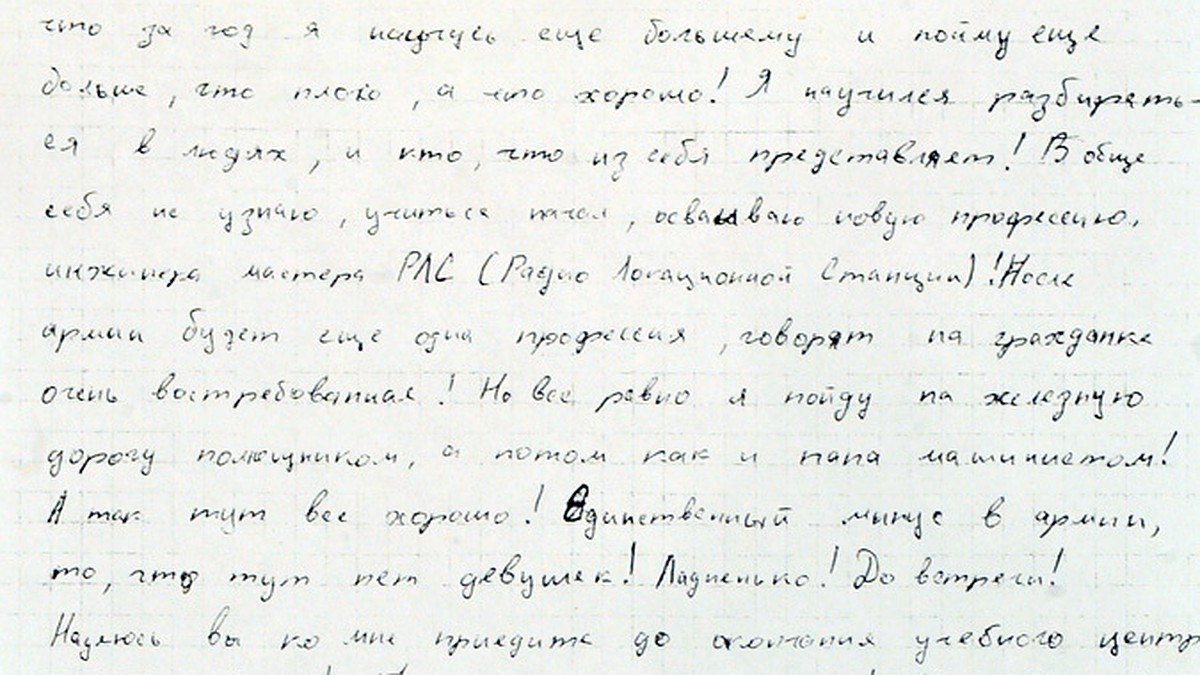 что за год я научусь еще большему и пойму еще
больше, что плохо, а что хорошо! Я научился разбирать-
ся в людях, и кто, что из себя представляет! В обще
себя не узнаю, учиться начал, осваиваю новую профессию,
инжинера мастера РЛС (Радио Локационной Станции)! После
армии будет еще одна профессия, говорят на гражданке
очень востребованная! Но все равно я пойду на железную
дорогу помощником, а потом как и папа машинистом!
А так тут все хорошо! Единственный минус в армии,
то, что тут нет девушек! Ладненько! До встречи!
Надеюсь вы ко мне приедите до окончания учебного центр